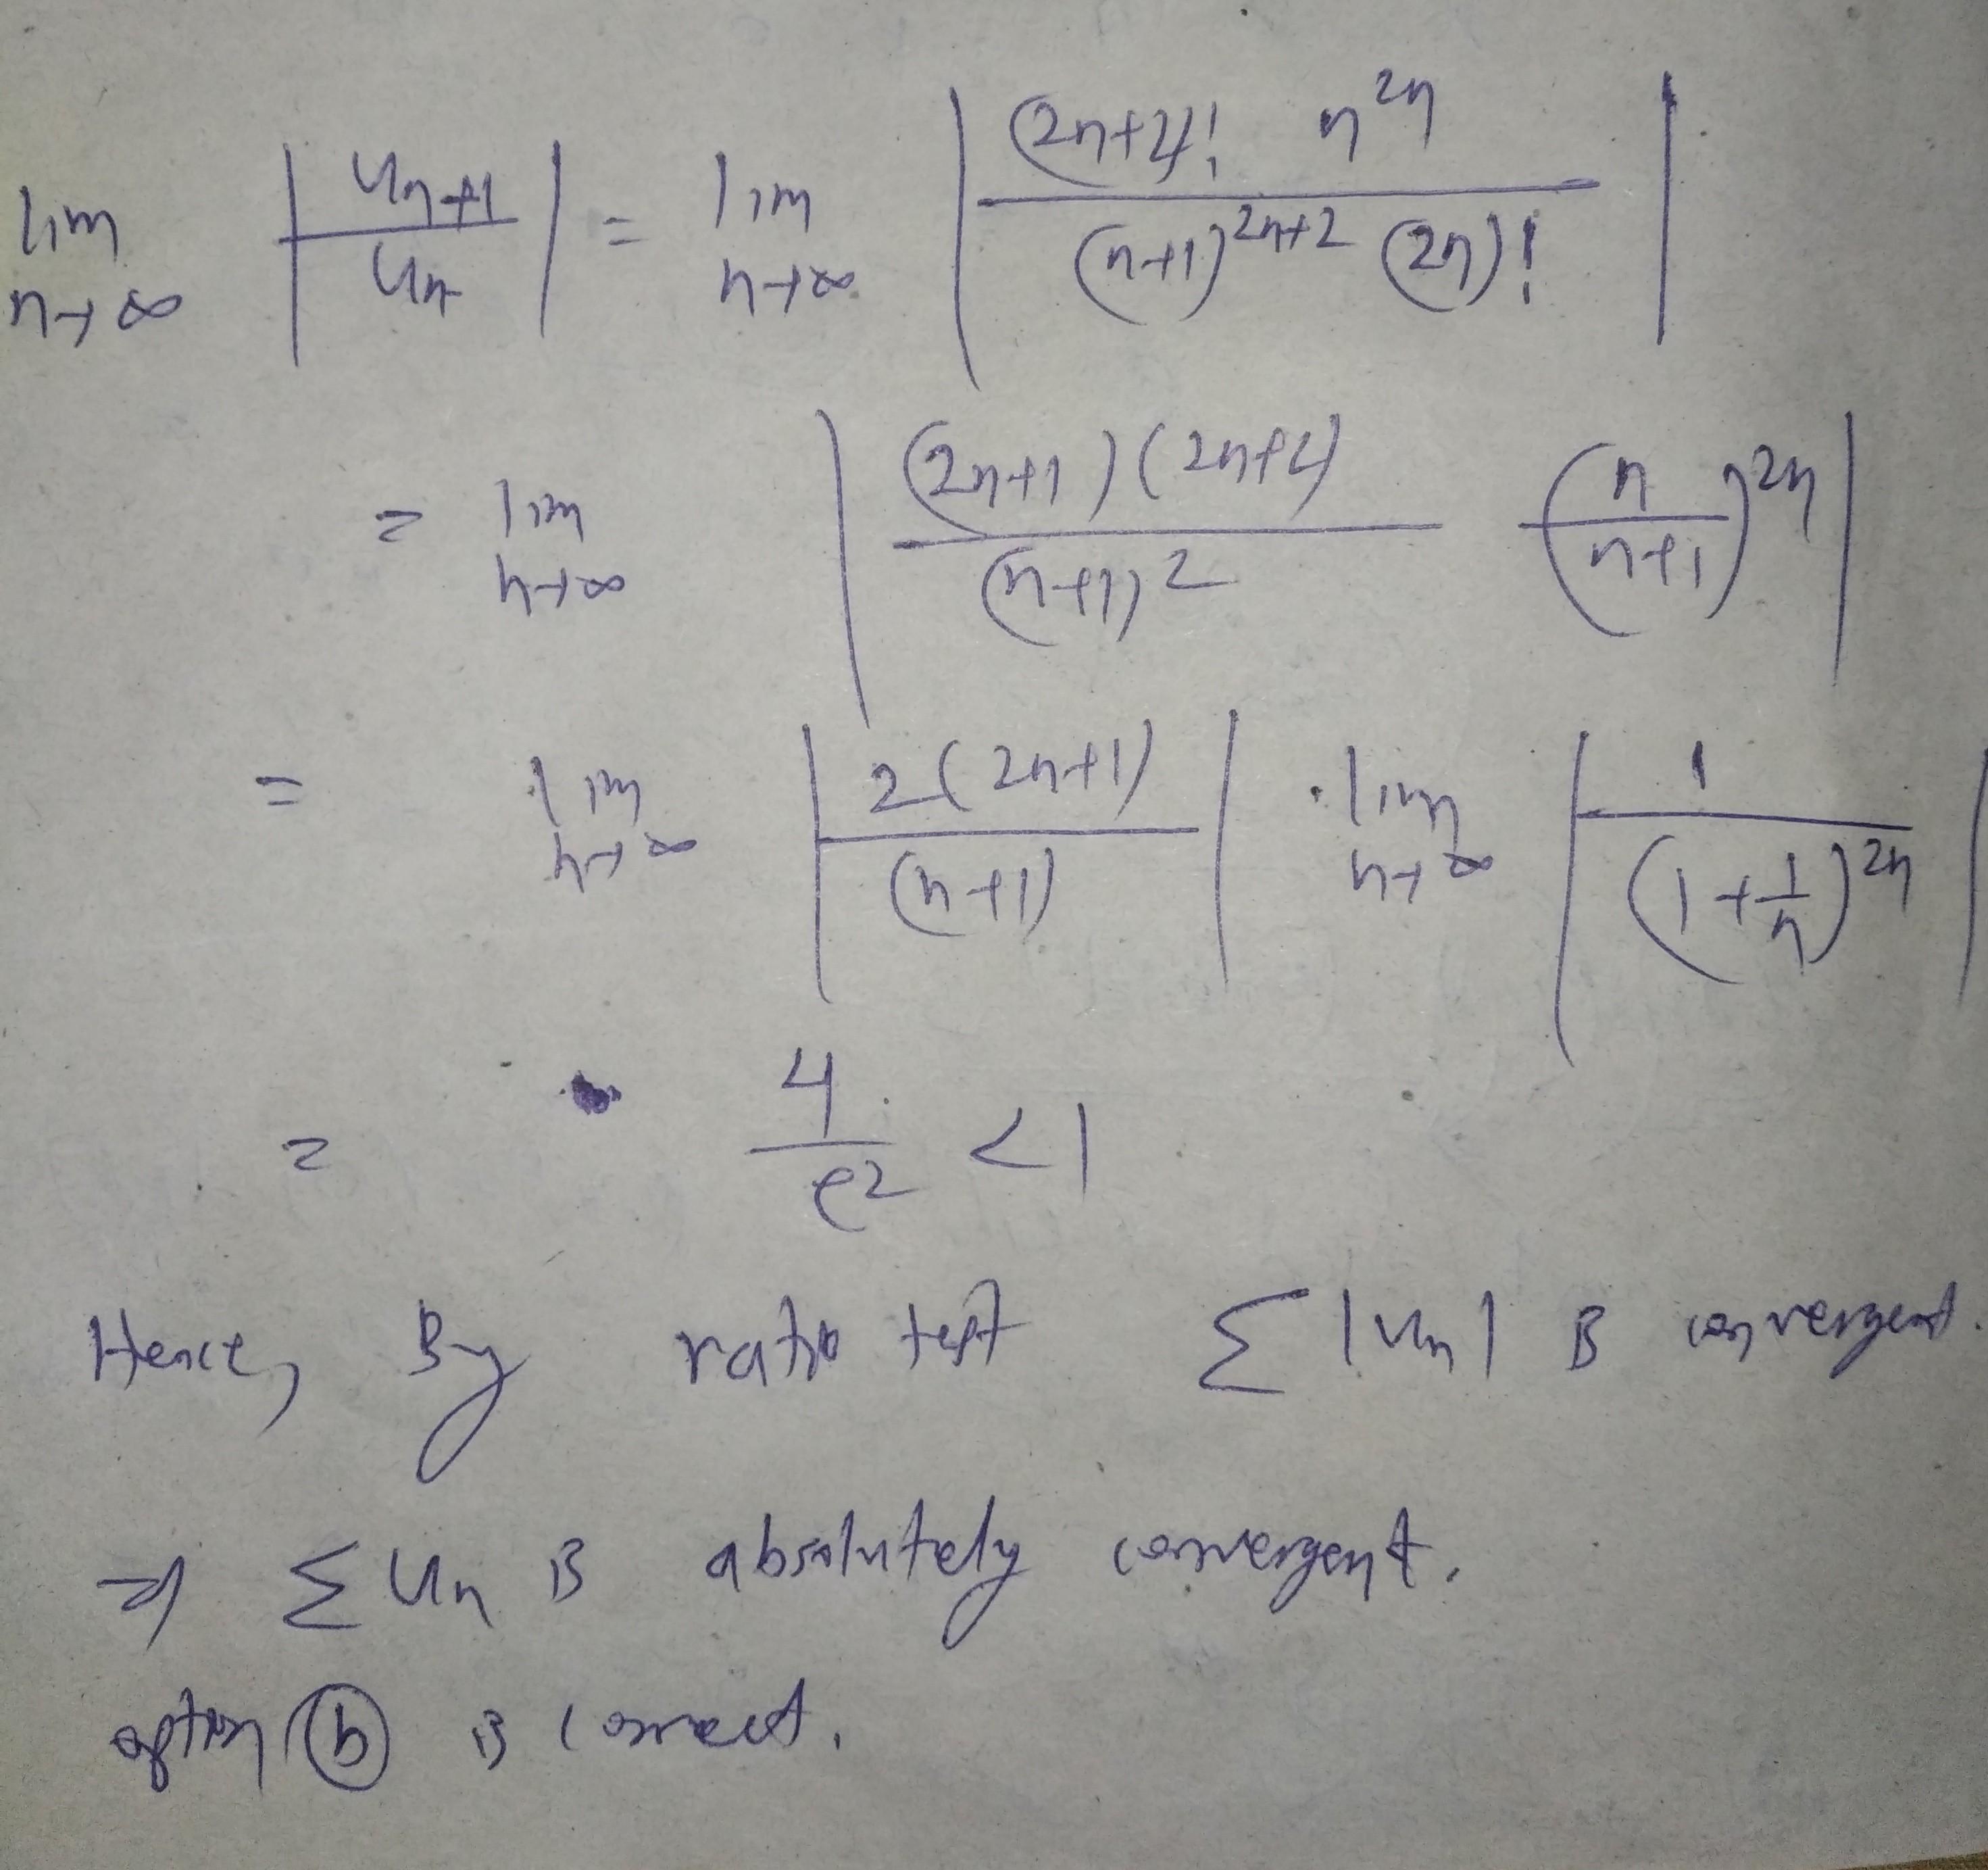 lim n→∞ |u_{n+1}/u_n| = lim n→∞ |(2n+2)! n^{2n} / (n+1)^{2n+2} (2n)!|
= lim n→∞ |(2n+1)(2n+2) / (n+1)^2 (n/n+1)^{2n}|
= lim n→∞ |2(2n+1) / (n+1)| · lim n→∞ |1 / (1+1/n)^{2n}|
= 4/e^2 < 1
Hence, By ratio test Σ|u_n| is convergent.
⇒ Σu_n is absolutely convergent.
option (b) is correct.